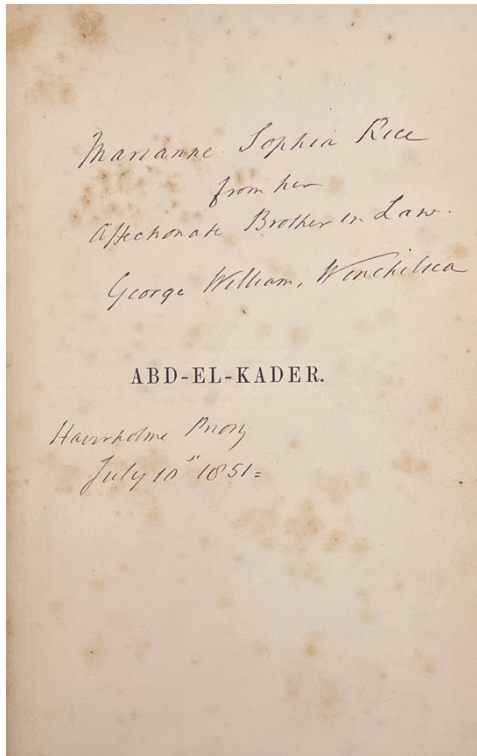 Marianne Sophia Rice
from her
Affectionate Brother in Law.
George William, Winchilsea
ABD-EL-KADER.
Haverholme Priory
July 10th 1851=